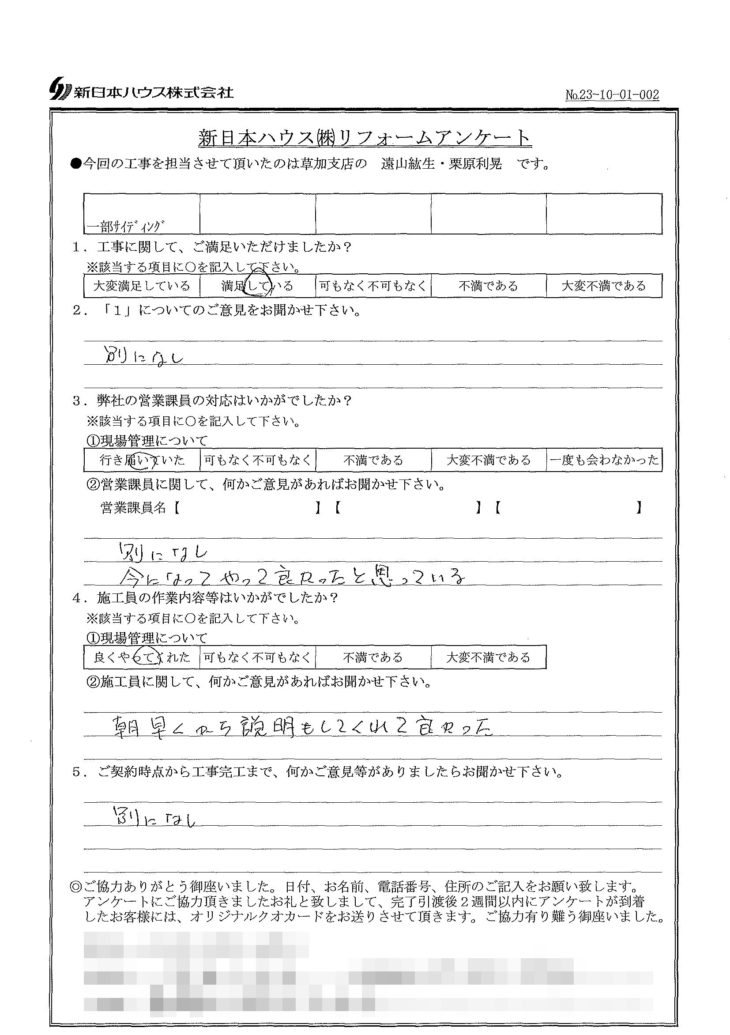 新日本ハウス株式会社
№23-10-01-002
新日本ハウス㈱リフォームアンケート
●今回の工事を担当させて頂いたのは草加支店の　遠山紘生・栗原利晃　です。
一部ｻｲﾃﾞｨﾝｸﾞ
１．工事に関して、ご満足いただけましたか？
※該当する項目に○を記入して下さい。
大変満足している　満足している　可もなく不可もなく　不満である　大変不満である
２．「１」についてのご意見をお聞かせ下さい。
別になし
３．弊社の営業課員の対応はいかがでしたか？
※該当する項目に○を記入して下さい。
①現場管理について
行き届いていた　可もなく不可もなく　不満である　大変不満である　一度も会わなかった
②営業課員に関して、何かご意見があればお聞かせ下さい。
営業課員名【　　　　　】【　　　　　】【　　　　　】
別になし
今になってやって良かったと思っている
４．施工員の作業内容等はいかがでしたか？
※該当する項目に○を記入して下さい。
①現場管理について
良くやってくれた　可もなく不可もなく　不満である　大変不満である
②施工員に関して、何かご意見があればお聞かせ下さい。
朝早くから説明もしてくれて良かった
５．ご契約時点から工事完工まで、何かご意見等がありましたらお聞かせ下さい。
別になし
◎ご協力ありがとう御座いました。日付、お名前、電話番号、住所のご記入をお願い致します。
アンケートにご協力頂きましたお礼と致しまして、完了引渡後２週間以内にアンケートが到着
したお客様には、オリジナルクオカードをお送りさせて頂きます。ご協力有り難う御座いました。